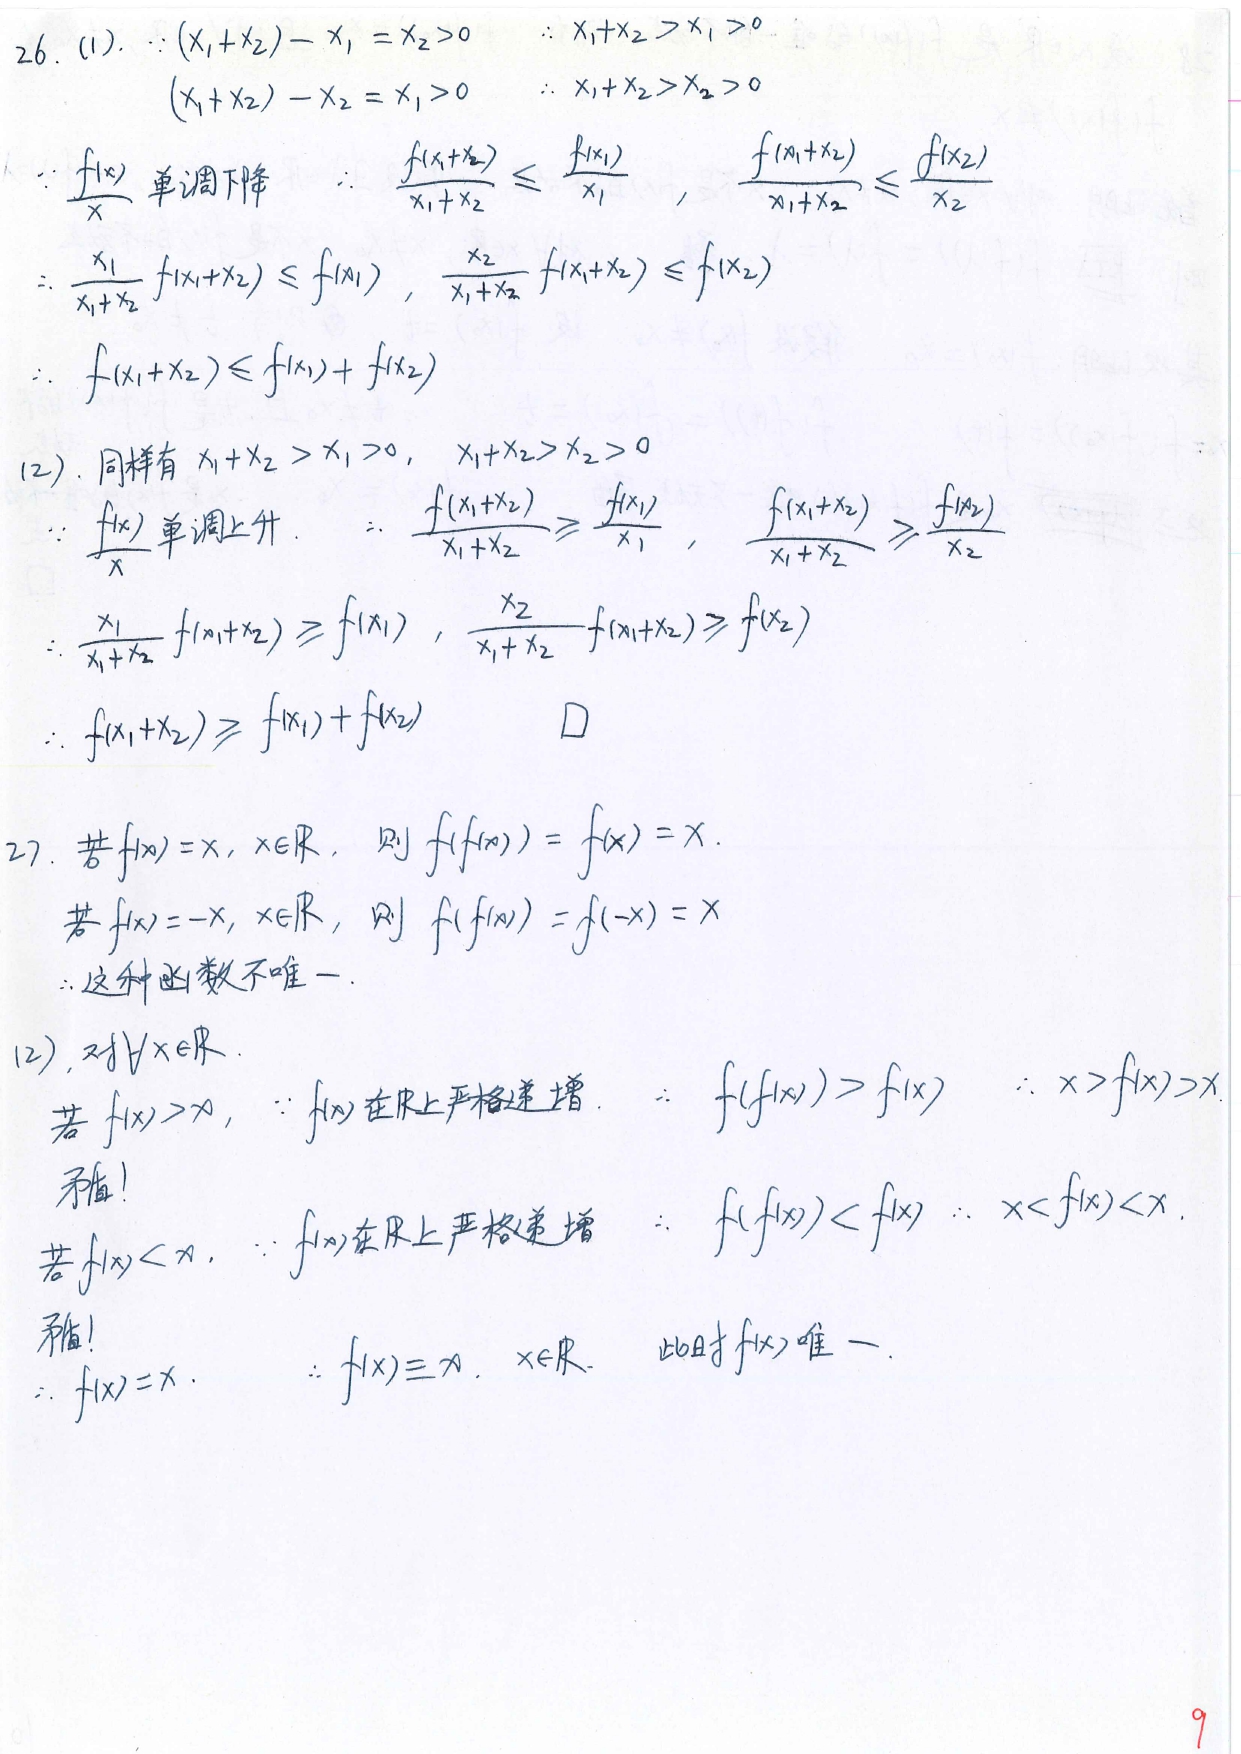 26. (1). ∵ (x₁+x₂) - x₁ = x₂ > 0 ∴ x₁+x₂ > x₁ > 0
(x₁+x₂) - x₂ = x₁ > 0 ∴ x₁+x₂ > x₂ > 0
∵ f(x)/x 单调下降 ∴ f(x₁+x₂)/(x₁+x₂) ≤ f(x₁)/x₁ , f(x₁+x₂)/(x₁+x₂) ≤ f(x₂)/x₂
∴ x₁/(x₁+x₂) f(x₁+x₂) ≤ f(x₁) , x₂/(x₁+x₂) f(x₁+x₂) ≤ f(x₂)
∴ f(x₁+x₂) ≤ f(x₁) + f(x₂)
(2). 同样有 x₁+x₂ > x₁ > 0, x₁+x₂ > x₂ > 0
∵ f(x)/x 单调上升. ∴ f(x₁+x₂)/(x₁+x₂) ≥ f(x₁)/x₁ , f(x₁+x₂)/(x₁+x₂) ≥ f(x₂)/x₂
∴ x₁/(x₁+x₂) f(x₁+x₂) ≥ f(x₁) , x₂/(x₁+x₂) f(x₁+x₂) ≥ f(x₂)
∴ f(x₁+x₂) ≥ f(x₁) + f(x₂) □
27. 若 f(x) = x, x∈ℝ, 则 f(f(x)) = f(x) = x.
若 f(x) = -x, x∈ℝ, 则 f(f(x)) = f(-x) = x
∴ 这种函数不唯一.
(2), 对∀x∈ℝ.
若 f(x) > x, ∵ f(x) 在ℝ上严格递增. ∴ f(f(x)) > f(x) ∴ x > f(x) > x.
矛盾!
若 f(x) < x. ∵ f(x) 在ℝ上严格递增 ∴ f(f(x)) < f(x) ∴ x < f(x) < x.
矛盾!
∴ f(x) = x. ∴ f(x) ≡ x. x∈ℝ. 此时 f(x) 唯一.
9